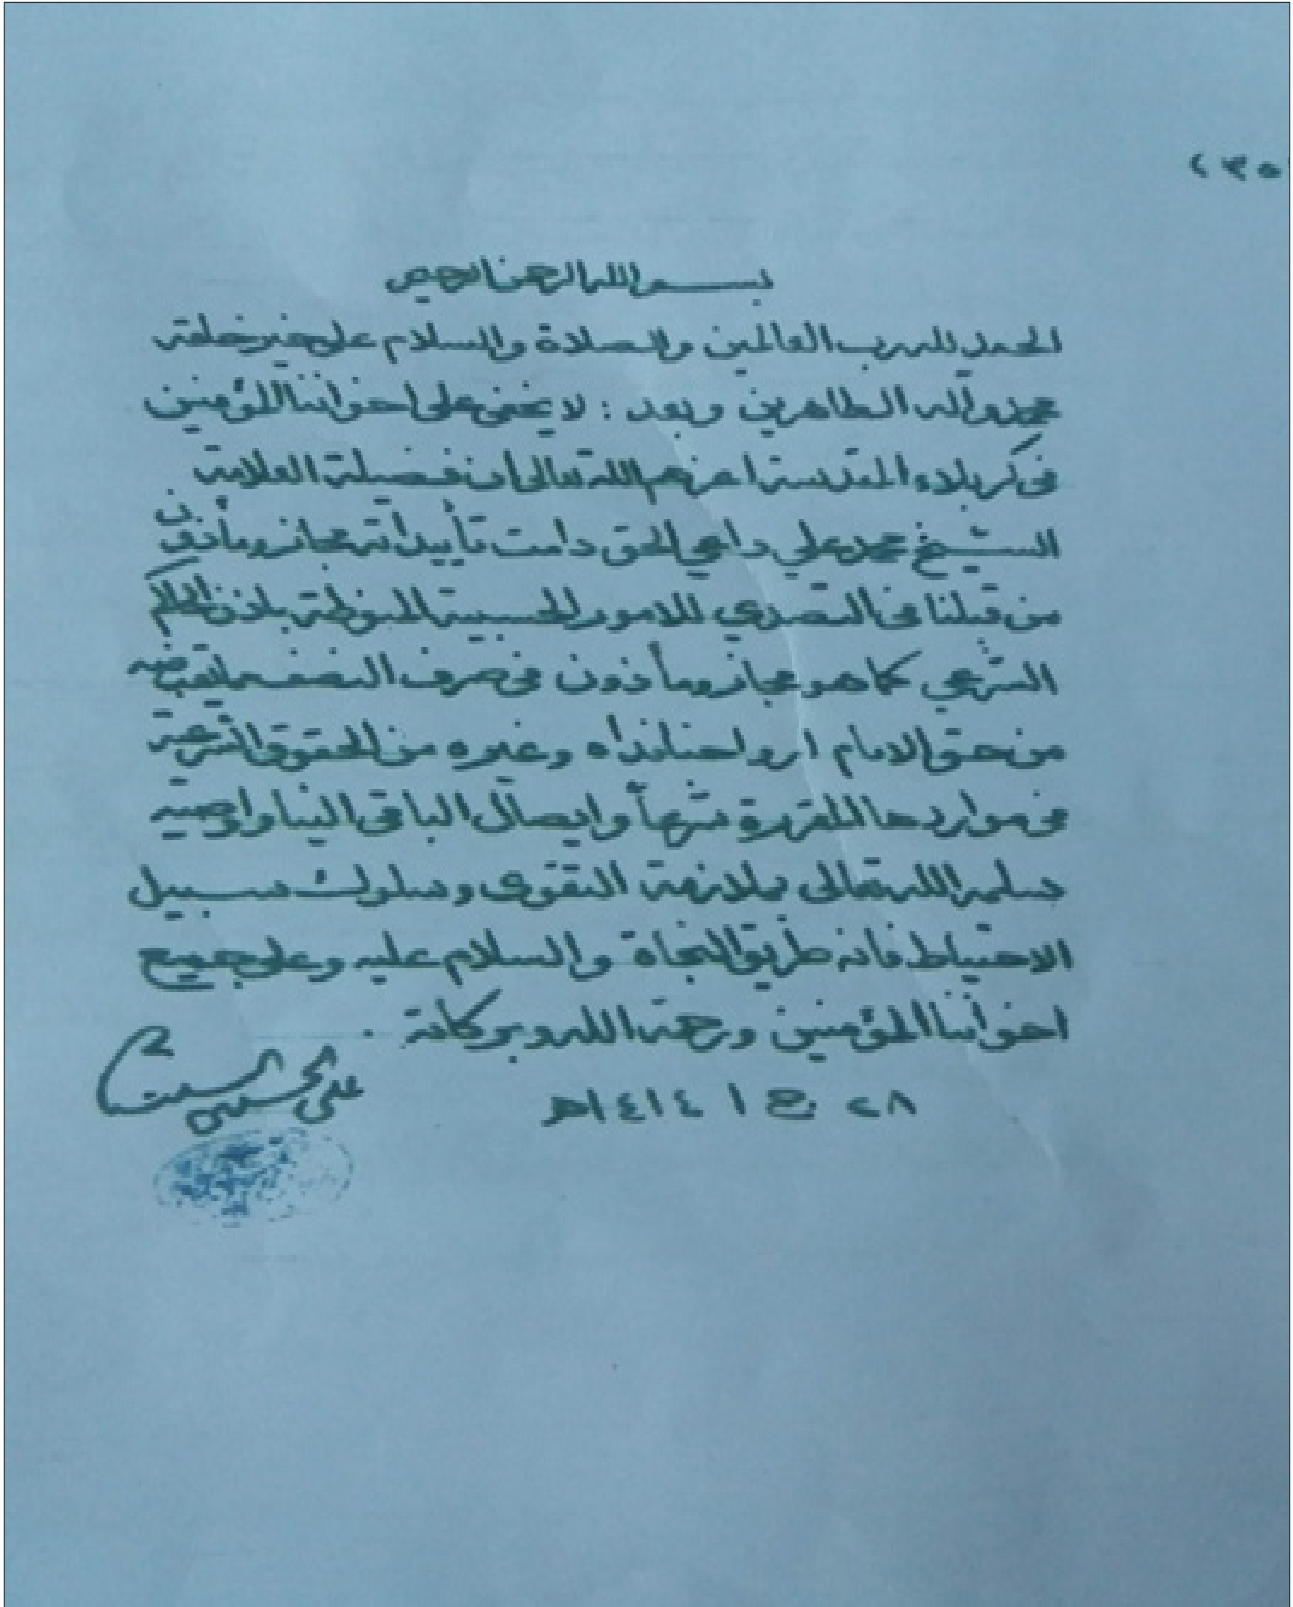 ٢٣٥
بسم الله الرحمن الرحيم
الحمد لله رب العالمين والصلاة والسلام على خير خلقه
محمد واله الطاهرين وبعد : لا يخفى على اخواننا المؤمنين
في كربلاء المقدسة اعزهم الله تعالى ان فضيلة العلامة
الشيخ محمد علي داعي الحق دامت تأييداته مجاز ومأذون
من قبلنا في التصدي للامور الحسبية المنوطة باذن الحاكم
الشرعي كما هو مجاز ومأذون في صرف النصف مما يقبضه
من حق الامام ارواحنا فداه وغيره من الحقوق الشرعية
في مواردها المقررة شرعاً وايصال الباقي الينا واوصيه
سلمه الله تعالى بملازمة التقوى وسلوك سبيل
الاحتياط فانه طريق النجاة والسلام عليه وعلى جميع
اخواننا المؤمنين ورحمة الله وبركاته .
٢٨ ع ١ ١٤١٤هـ
علي الحسيني السيستاني